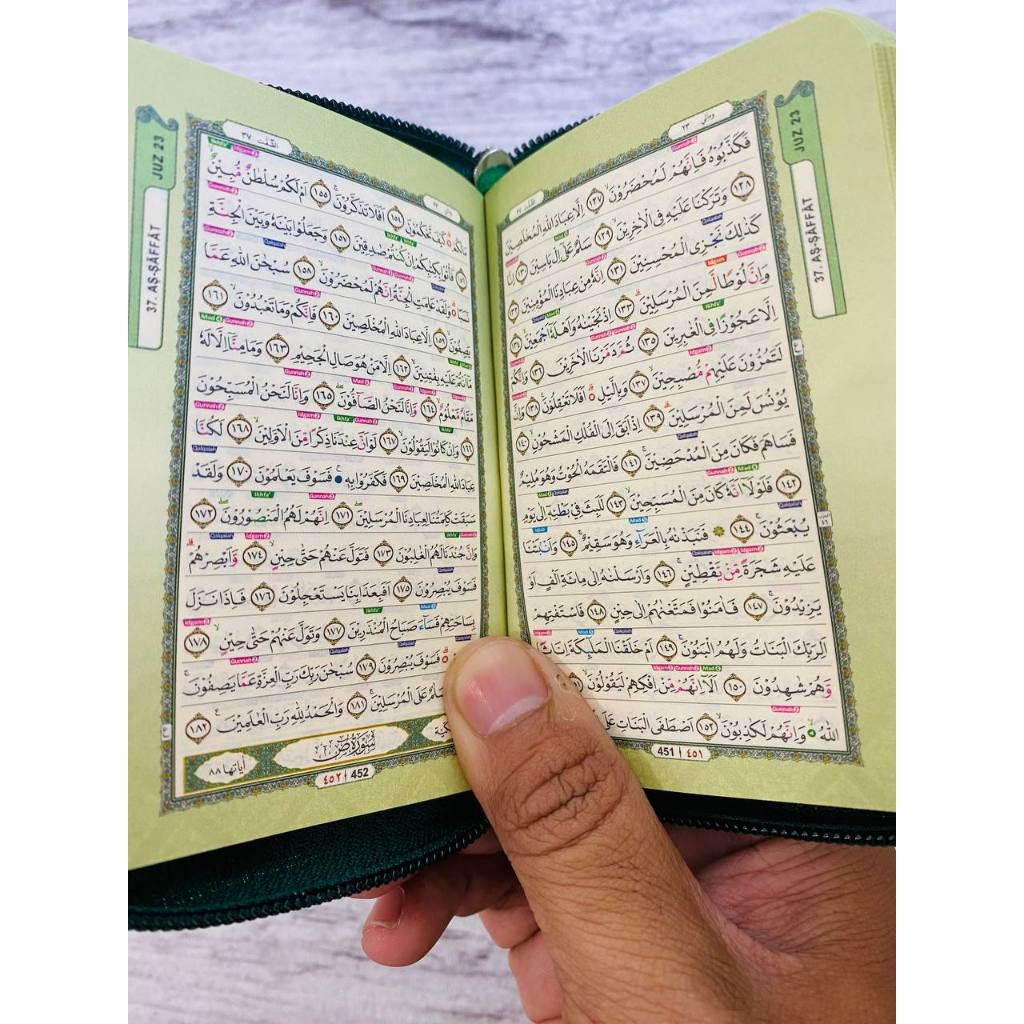 JUZ 23
37. AṢ-ṢĀFFĀT
وَمَالِيَ ـ ٢٣
فَكَذَّبُوْهُ فَاِنَّهُمْ لَمُحْضَرُوْنَ ١٢٧ اِلَّا عِبَادَ اللّٰهِ الْمُخْلَصِيْنَ
١٢٨ وَتَرَكْنَا عَلَيْهِ فِى الْاٰخِرِيْنَ ١٢٩ سَلٰمٌ عَلٰٓى اِلْ يَاسِيْنَ ١٣٠ اِنَّا
كَذٰلِكَ نَجْزِى الْمُحْسِنِيْنَ ١٣١ اِنَّهٗ مِنْ عِبَادِنَا الْمُؤْمِنِيْنَ ١٣٢
وَاِنَّ لُوْطًا لَّمِنَ الْمُرْسَلِيْنَ ١٣٣ اِذْ نَجَّيْنٰهُ وَاَهْلَهٗٓ اَجْمَعِيْنَ ١٣٤
اِلَّا عَجُوْزًا فِى الْغٰبِرِيْنَ ١٣٥ ثُمَّ دَمَّرْنَا الْاٰخَرِيْنَ ١٣٦ وَاِنَّكُمْ
لَتَمُرُّوْنَ عَلَيْهِمْ مُّصْبِحِيْنَ ١٣٧ وَبِالَّيْلِ اَفَلَا تَعْقِلُوْنَ ١٣٨ وَاِنَّ
يُوْنُسَ لَمِنَ الْمُرْسَلِيْنَ ١٣٩ اِذْ اَبَقَ اِلَى الْفُلْكِ الْمَشْحُوْنِ ١٤٠
فَسَاهَمَ فَكَانَ مِنَ الْمُدْحَضِيْنَ ١٤١ فَالْتَقَمَهُ الْحُوْتُ وَهُوَ مُلِيْمٌ
١٤٢ فَلَوْلَآ اَنَّهٗ كَانَ مِنَ الْمُسَبِّحِيْنَ ١٤٣ لَلَبِثَ فِيْ بَطْنِهٖٓ اِلٰى يَوْمِ
يُبْعَثُوْنَ ١٤٤ فَنَبَذْنٰهُ بِالْعَرَاۤءِ وَهُوَ سَقِيْمٌ ١٤٥ وَاَنْۢبَتْنَا
عَلَيْهِ شَجَرَةً مِّنْ يَّقْطِيْنٍ ١٤٦ وَاَرْسَلْنٰهُ اِلٰى مِائَةِ اَلْفٍ اَوْ
يَزِيْدُوْنَ ١٤٧ فَاٰمَنُوْا فَمَتَّعْنٰهُمْ اِلٰى حِيْنٍ ١٤٨ فَاسْتَفْتِهِمْ
اَلِرَبِّكَ الْبَنَاتُ وَلَهُمُ الْبَنُوْنَ ١٤٩ اَمْ خَلَقْنَا الْمَلٰۤىِٕكَةَ اِنَاثًا
وَّهُمْ شٰهِدُوْنَ ١٥٠ اَلَآ اِنَّهُمْ مِّنْ اِفْكِهِمْ لَيَقُوْلُوْنَ
اللّٰهُ وَاِنَّهُمْ لَكٰذِبُوْنَ ١٥٢ اَصْطَفَى الْبَنَاتِ عَلَى
451 ٤٥١
JUZ 23
37. AṢ-ṢĀFFĀT
الصّٰۤفّٰت ـ ٣٧
مَا لَكُمْ كَيْفَ تَحْكُمُوْنَ ١٥٤ اَفَلَا تَذَكَّرُوْنَ ١٥٥ اَمْ لَكُمْ سُلْطٰنٌ مُّبِيْنٌ
١٥٦ فَأْتُوْا بِكِتٰبِكُمْ اِنْ كُنْتُمْ صٰدِقِيْنَ ١٥٧ وَجَعَلُوْا بَيْنَهٗ وَبَيْنَ الْجِنَّةِ
نَسَبًا وَلَقَدْ عَلِمَتِ الْجِنَّةُ اِنَّهُمْ لَمُحْضَرُوْنَ ١٥٨ سُبْحٰنَ اللّٰهِ عَمَّا
يَصِفُوْنَ ١٥٩ اِلَّا عِبَادَ اللّٰهِ الْمُخْلَصِيْنَ ١٦٠ فَاِنَّكُمْ وَمَا تَعْبُدُوْنَ ١٦١
مَآ اَنْتُمْ عَلَيْهِ بِفَاتِنِيْنَ ١٦٢ اِلَّا مَنْ هُوَ صَالِ الْجَحِيْمِ ١٦٣ وَمَا مِنَّآ اِلَّا لَهٗ
مَقَامٌ مَّعْلُوْمٌ ١٦٤ وَاِنَّا لَنَحْنُ الصَّاۤفُّوْنَ ١٦٥ وَاِنَّا لَنَحْنُ الْمُسَبِّحُوْنَ
١٦٦ وَاِنْ كَانُوْا لَيَقُوْلُوْنَ ١٦٧ لَوْ اَنَّ عِنْدَنَا ذِكْرًا مِّنَ الْاَوَّلِيْنَ ١٦٨ لَكُنَّا
عِبَادَ اللّٰهِ الْمُخْلَصِيْنَ ١٦٩ فَكَفَرُوْا بِهٖ فَسَوْفَ يَعْلَمُوْنَ ١٧٠ وَلَقَدْ
سَبَقَتْ كَلِمَتُنَا لِعِبَادِنَا الْمُرْسَلِيْنَ ١٧١ اِنَّهُمْ لَهُمُ الْمَنْصُوْرُوْنَ ١٧٢
وَاِنَّ جُنْدَنَا لَهُمُ الْغٰلِبُوْنَ ١٧٣ فَتَوَلَّ عَنْهُمْ حَتّٰى حِيْنٍ ١٧٤ وَّاَبْصِرْهُمْ
فَسَوْفَ يُبْصِرُوْنَ ١٧٥ اَفَبِعَذَابِنَا يَسْتَعْجِلُوْنَ ١٧٦ فَاِذَا نَزَلَ
بِسَاحَتِهِمْ فَسَاۤءَ صَبَاحُ الْمُنْذَرِيْنَ ١٧٧ وَتَوَلَّ عَنْهُمْ حَتّٰى حِيْنٍ ١٧٨
فَسَوْفَ يُبْصِرُوْنَ ١٧٩ سُبْحٰنَ رَبِّكَ رَبِّ الْعِزَّةِ عَمَّا يَصِفُوْنَ
عَلَى الْمُرْسَلِيْنَ ١٨١ وَالْحَمْدُ لِلّٰهِ رَبِّ الْعٰلَمِيْنَ ١٨٢
سُوْرَةُ صۤ
أٰياتها ٨٨
٤٥٢ 452